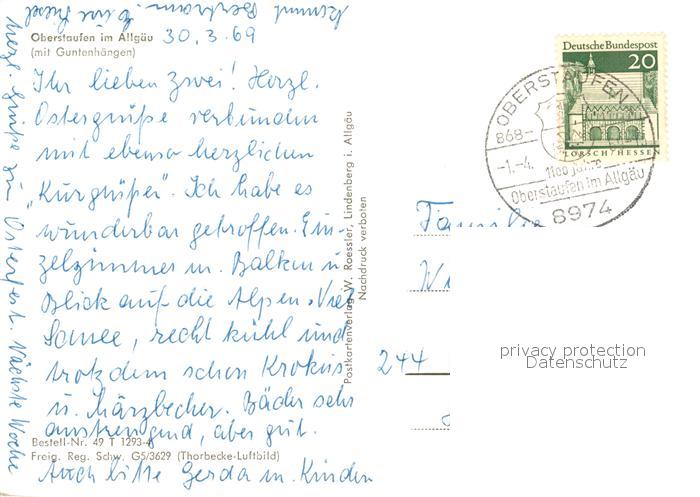 Oberstaufen im Allgäu 30.3.69
(mit Guntenhängen)
Ihr lieben zwei! Herzl.
Ostergrüße verbunden
mit ebenso herzlichen
"Kurgrüßen". Ich habe es
wunderbar getroffen. Ein-
zelzimmer m. Balkon u.
Blick auf die Alpen. Viel
Schnee, recht kühl und
trotzdem schon Krokuss
u. Märzbecher. Bäder sehr
anstrengend, aber gut.
Bestell-Nr. 49 T 1293-4
Freig. Reg. Schw. G5/3629 (Thorbecke-Luftbild)
Auch bitte Gerda m. Kinder
herzl. Grüße zum Osterfest. Nächste Woche
kommt
Postkartenverlag W. Roessler, Lindenberg i. Allgäu
Nachdruck verboten
Deutsche Bundespost
20
LORSCH/HESSEN
OBERSTAUFEN
868-
-1.-4.
1100 Jahre
Oberstaufen im Allgäu
8974
Familie
244
privacy protection
Datenschutz